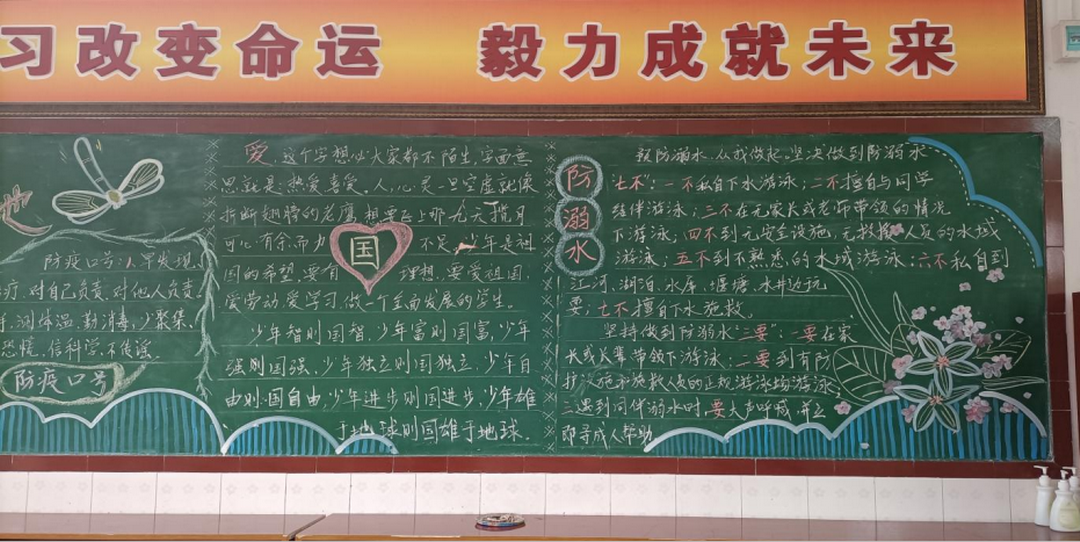 习改变命运 毅力成就未来
防疫口号:1.早发现、
疗,对自己负责,对他人负责
测体温,勤消毒,少聚集、
恐慌,信科学,不传谣。
防疫口号
爱,这个字想必大家都不陌生,字面意
思就是:热爱喜爱。人,心灵一旦空虚就像
折断翅膀的老鹰,想要飞上那九天揽月
可心有余而力 不足,少年是祖
国的希望,要有 理想,要爱祖国,
爱劳动,爱学习,做一个全面发展的学生。
国
少年智则国智,少年富则国富,少年
强则国强,少年独立则国独立,少年自
由则国自由,少年进步则国进步,少年雄
于地球则国雄于地球。
防溺水
预防溺水,从我做起,坚决做到防溺水
“七不”:一不私自下水游泳;二不擅自与同学
结伴游泳;三不在无家长或老师带领的情况
下游泳;四不到无安全设施,无救援人员的水域
游泳;五不到不熟悉的水域游泳;六不私自到
江河、湖泊、水库、堰塘、水井边玩
耍;七不擅自下水施救。
坚持做到防溺水“三要”:一要在家
长或长辈带领下游泳,二要到有防
护设施和施救人员的正规游泳场游泳,
三遇到同伴溺水时,要大声呼喊,并立
即寻成人帮助